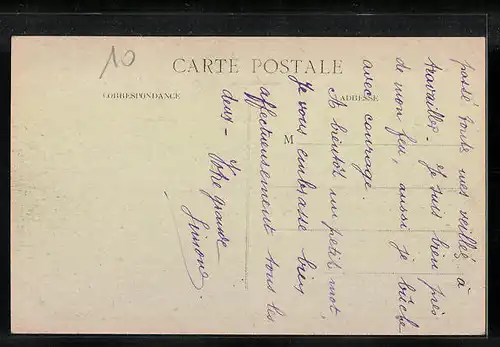 10
CARTE POSTALE
CORRESPONDANCE
ADRESSE
M
passé toutes mes veillées à
travailler. Je suis bien près
de mon feu, aussi je bûche
avec courage.
A bientôt un petit mot,
Je vous embrasse bien
affectueusement tous les
deux - Votre grande
Simone.